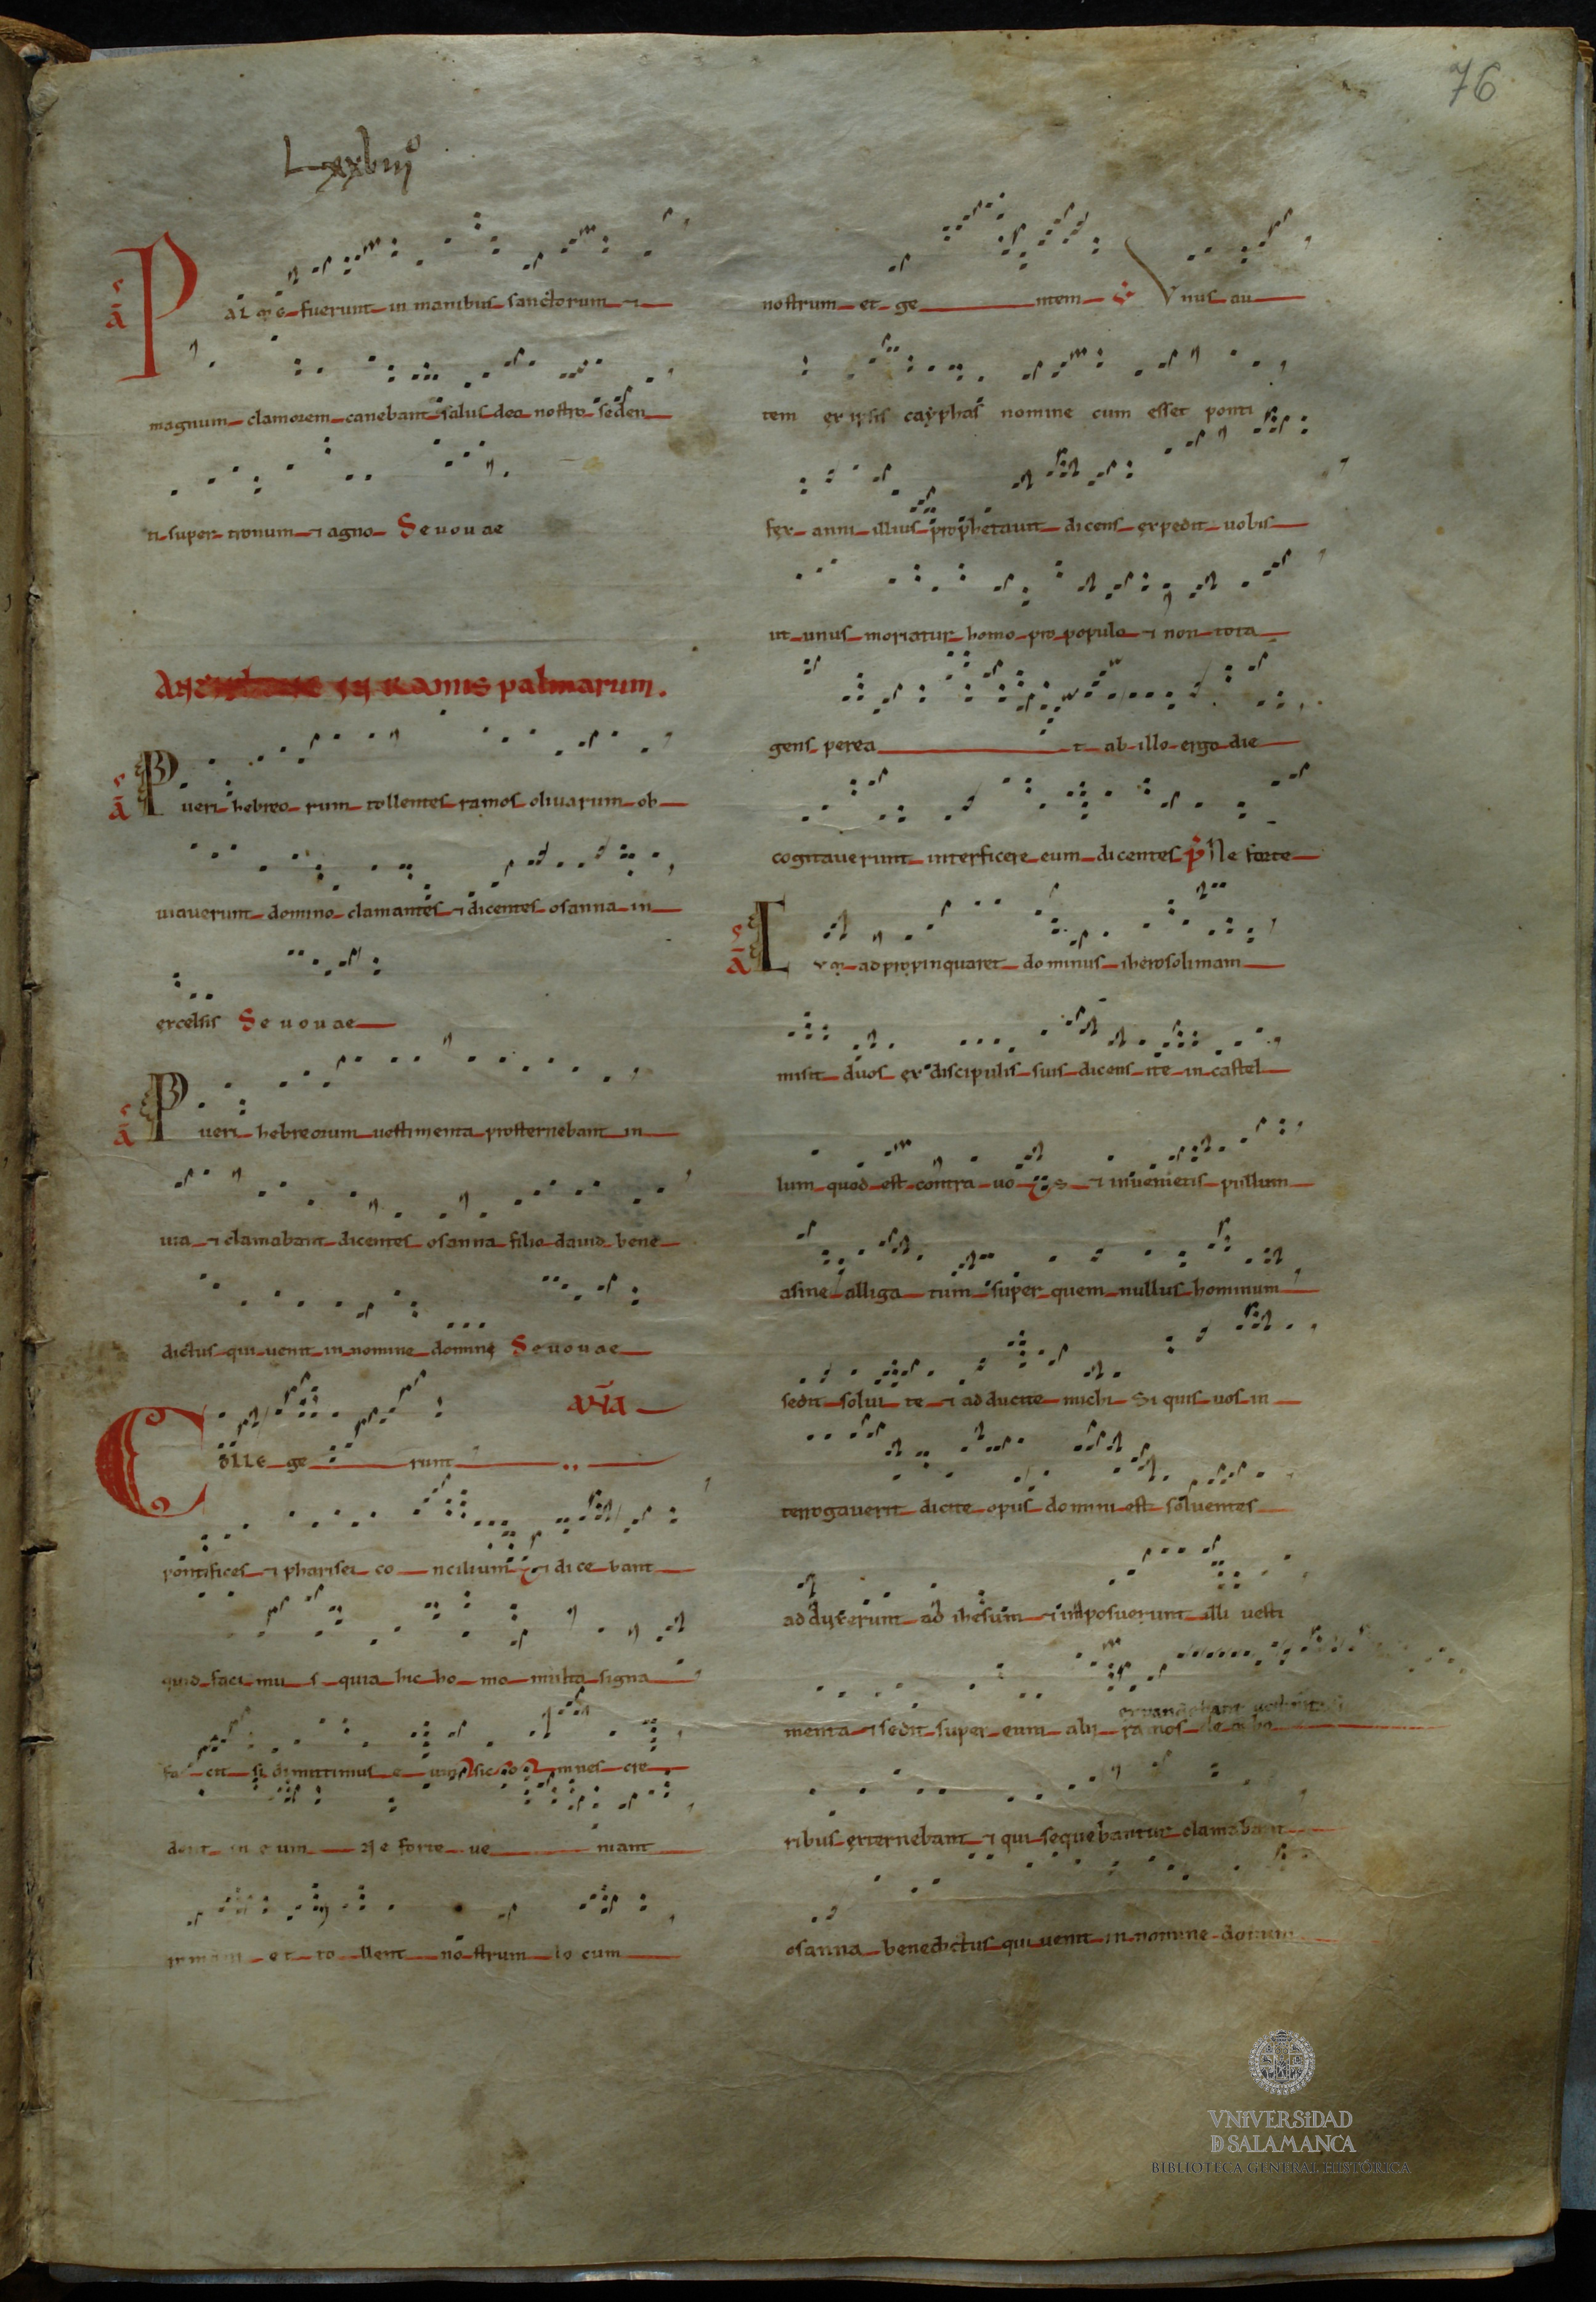 76
Lxxbiijº
Palme fuerunt in manibus sanctorum ⁊
magnum clamorem canebant salus deo nostro seden
ti super tronum ⁊ agno Seuouae
in ramis palmarum.
ā Pueri hebreo rum tollentes ramos oliuarum ob
uiauerunt domino clamantes ⁊ dicentes osanna in
excelsis Seuouae
ā Pueri hebreorum uestimenta prosternebant in
uia ⁊ clamabant dicentes osanna filio dauid bene
dictus qui uenit in nomine domini Seuouae
Colle ge runt
pontifices ⁊ pharisei co ncilium ⁊ dice bant
quid faci mu s quia hic ho mo multa signa
fa cit si dimittimus e um sic o mnes cre
dent in eum Ne forte ue niant
romani et to llent nostrum lo cum
nostrum et ge ntem Vnus au
tem ex ipsis cayphas nomine cum esset ponti
fex anni illius prophetauit dicens expedit uobis
ut unus moriatur homo pro populo ⁊ non tota
gens perea t ab illo ergo die
cogitauerunt interficere eum dicentes Ne forte
ā Cum adpropinquaret dominus iherosolimam
misit duos ex discipulis suis dicens ite in castel
lum quod est contra uo s ⁊ inuenietis pullum
asine alliga tum super quem nullus hominum
sedit solui te ⁊ adducite michi Si quis uos in
terrogauerit dicite opus domini est soluentes
adduxerunt ad ihesum ⁊ imposuerunt illi uesti
menta ⁊ sedit super eum alij ramos de arbo
ribus externebant ⁊ qui sequebantur clamabant
osanna benedictus qui uenit in nomine domini
VNIVERSIDAD
D SALAMANCA
BIBLIOTECA GENERAL HISTÓRICA